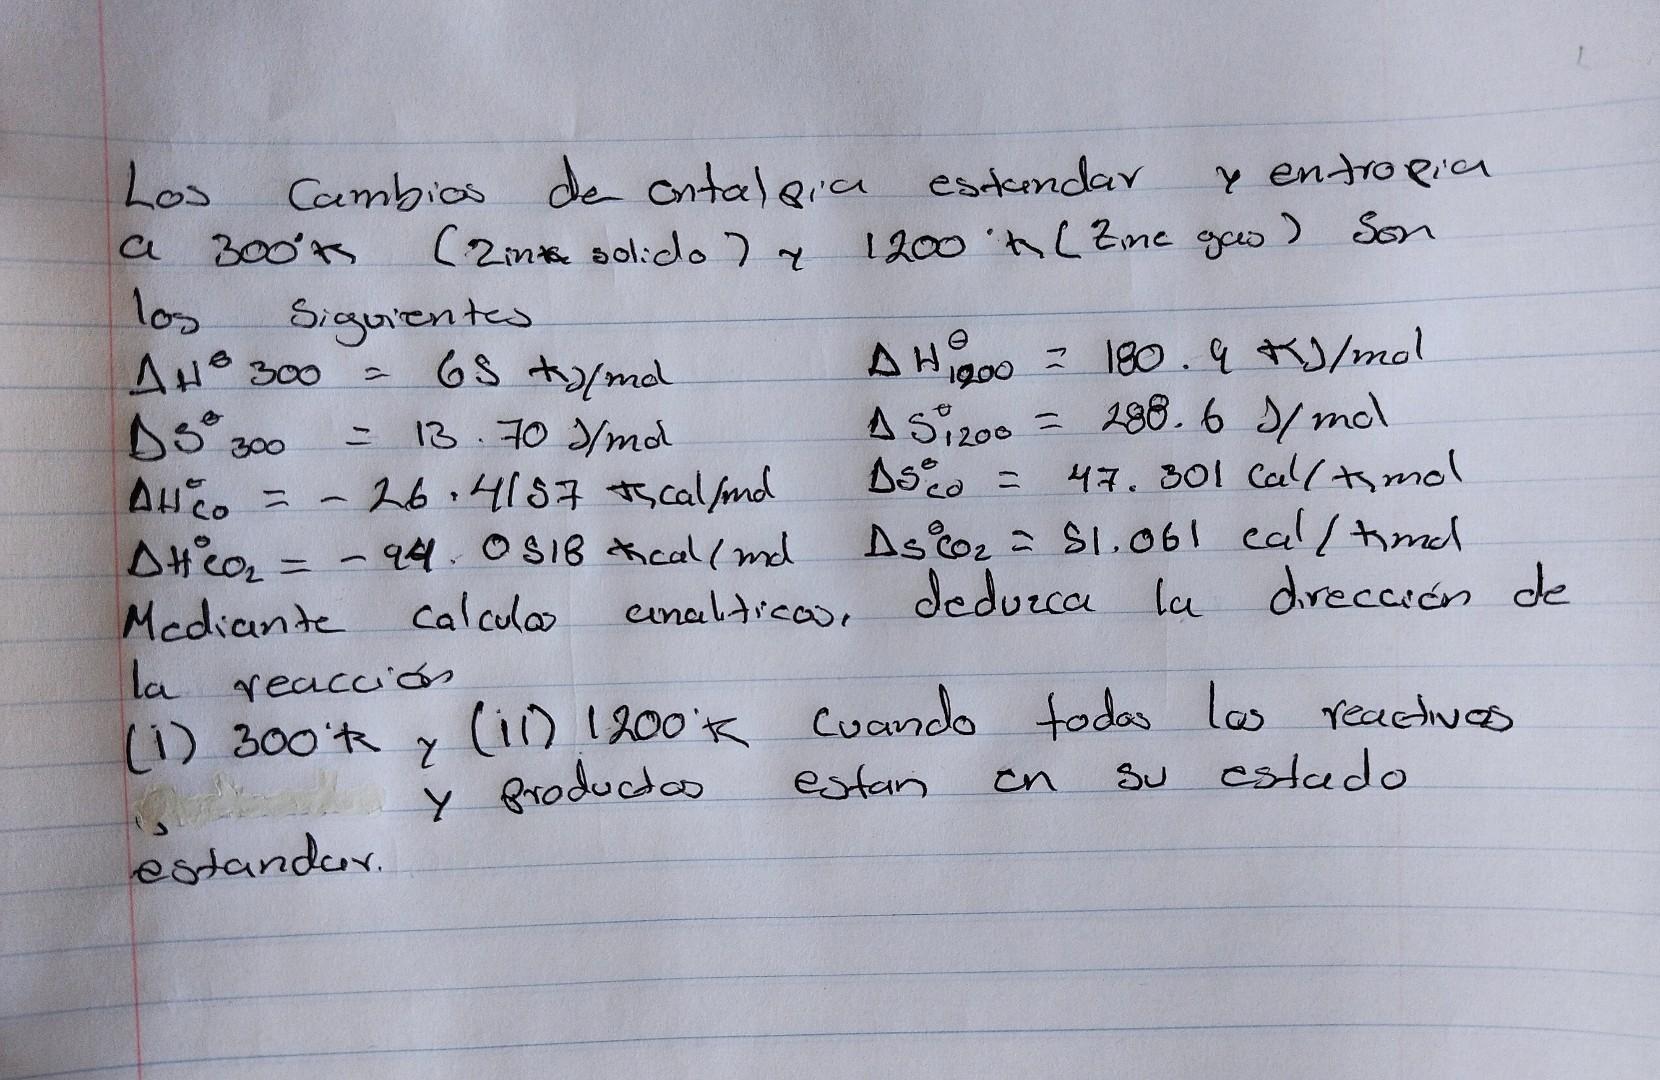 Los Cambios de entalpia estandar y entropia
a 300°K (Zinc solido) y 1200°K (Zinc gas) son
los siguientes
ΔH° 300 = 65 KJ/mol ΔH°1200 = 180.9 KJ/mol
ΔS°300 = 13.70 J/mol ΔS°1200 = 288.6 J/mol
ΔH°CO = - 26.4157 Kcal/mol ΔS°CO = 47.301 Cal/Kmol
ΔH°CO2 = - 94.0518 Kcal/mol ΔS°CO2 = 51.061 cal/Kmol
Mediante calculos analiticos, deduzca la dirección de
la reacción
(i) 300°K y (ii) 1200°K cuando todos los reactivos
y productos estan en su estado
estandar.